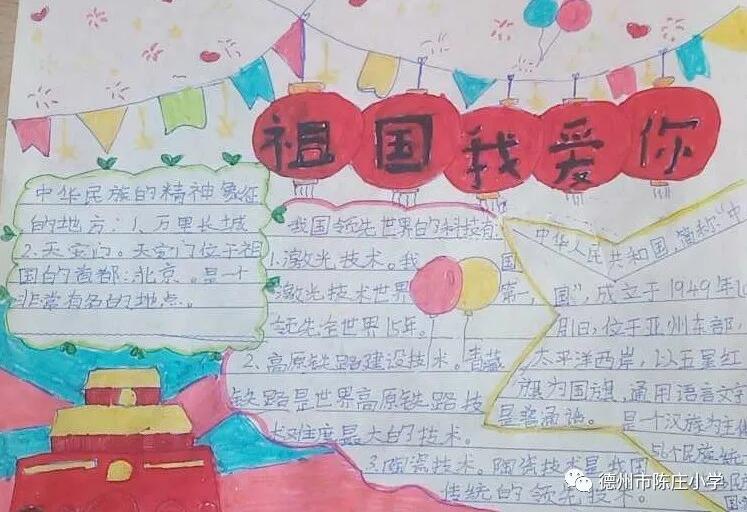 祖国我爱你
中华民族的精神象征
的地方：1、万里长城
2、天安门。天安门位于祖
国的首都：北京。是一个
非常有名的地点。
我国领先世界的科技有
1.激光技术。我国
激光技术世界第一，
领先全世界15年。
2、高原铁路建设技术。青藏
铁路是世界高原铁路技
术难度最大的技术。
3.陶瓷技术。陶瓷技术是我国
传统的领先技术。
中华人民共和国，简称“中
国”，成立于1949年10
月1日，位于亚州东部，
太平洋西岸，以五星红
旗为国旗，通用语言文字
是普通话。是一个汉族为主体
56个民族统
德州市陈庄小学